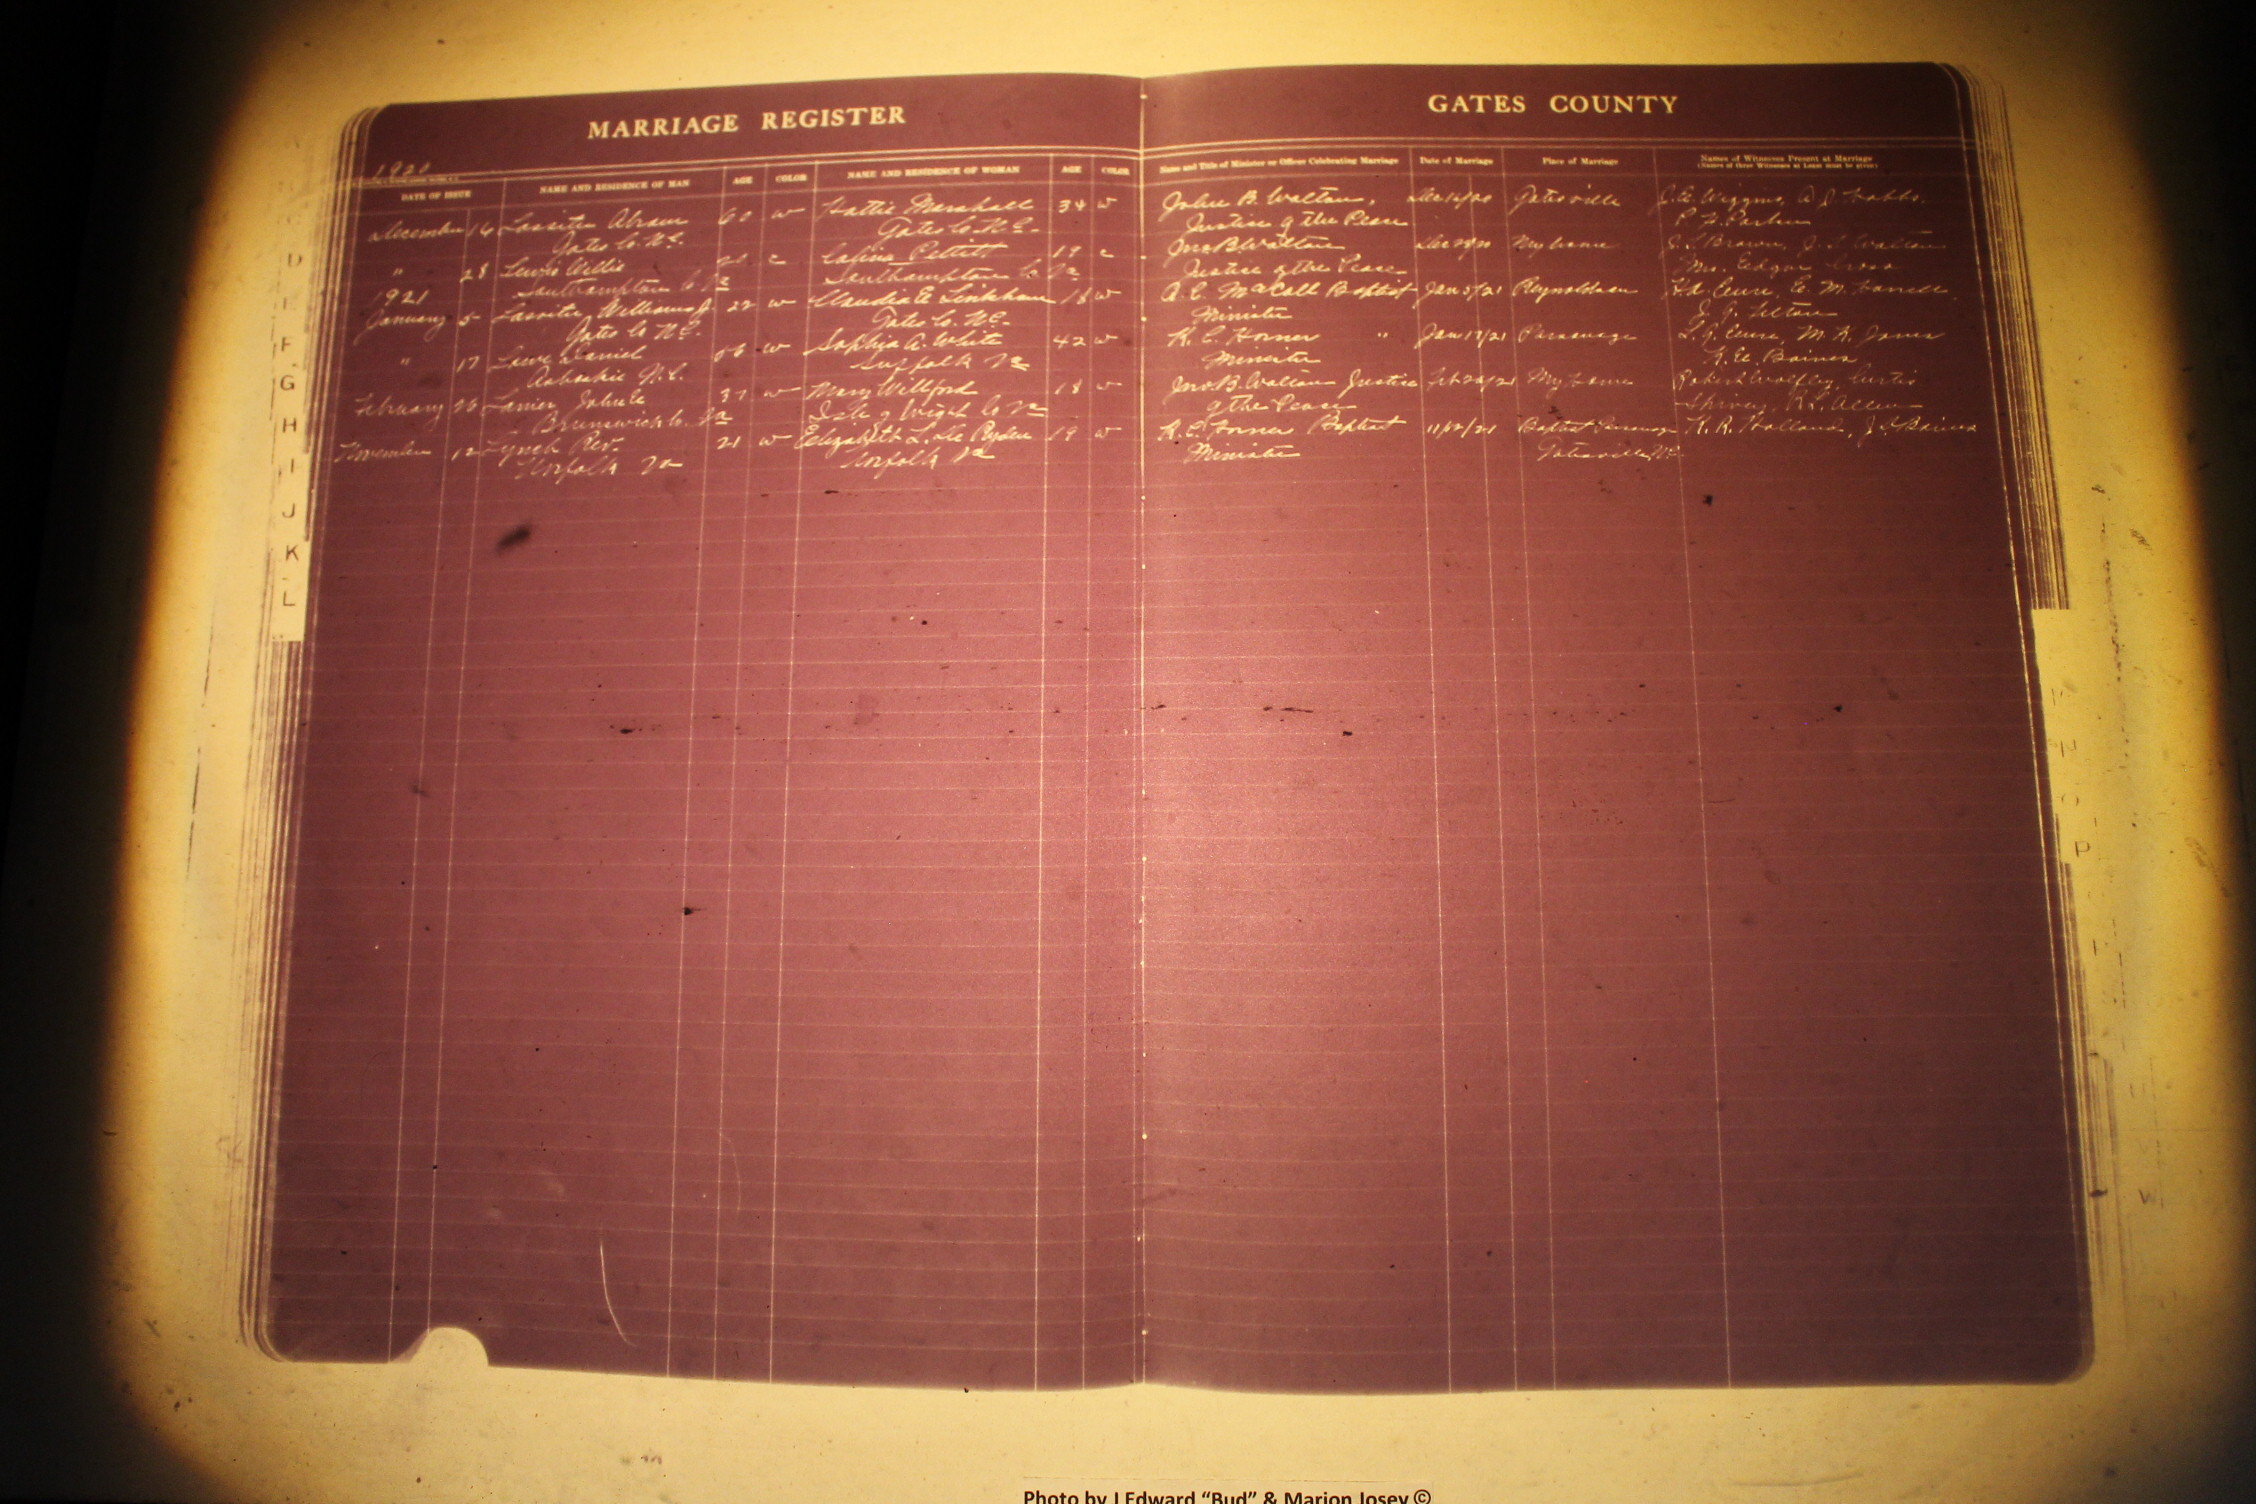 MARRIAGE REGISTER
GATES COUNTY
1920
DATE OF ISSUE
NAME AND RESIDENCE OF MAN
AGE
COLOR
NAME AND RESIDENCE OF WOMAN
AGE
COLOR
Name and Title of Minister or Officer Celebrating Marriage
Date of Marriage
Place of Marriage
Names of Witnesses Present at Marriage
(Names of three Witnesses at Least must be given)
December 16 Lassiter Abram 60 w Hattie Marshall 34 w John B. Walton, Dec 16/20 Gatesville J. E. Wiggins, A. J. Hobbs,
Gates Co. N.C. Gates Co. N.C. Justice of the Peace P. H. Parker
" 28 Lewis Willis c Pettitt 19 c Jno B. Walton My home J. S. Brown, Walton
Southampton Co. Va Southampton Co. Va Justice of the Peace Mrs. Edgar Cross
1921
January 5 Lassiter, William J. 22 w Claudia E Linkham 18 w A. C. McCall Baptist Jan 5/21 Reynoldson E. M. Harrell
Gates Co N.C. Gates Co. N.C. Minister
" 17 Lowe Daniel 56 w Sophia A. White 42 w R. C. Horner " Jan 17/21 Parsonage M. R. Jones
Ahoskie N.C. Suffolk Va Minister R. E. Baines
February 26 Lanier John E 37 w Mary Willford 18 w Jno B. Walton Justice Feb 26/21 My home Robert Wolfley, Curtis
Brunswick Co. Va Isle of Wight Co Va of the Peace Shivers, R. L. Allen
November 12 Lynch Rev. 21 w Elizabeth L. 19 w R. C. Horner Baptist 11/12/21 Baptist Parsonage R. R. Holland, Baines
Norfolk Va Norfolk Va Minister Gatesville N.C.
D
F
G
H
I
J
K
L
N
O
P
V
Photo by J Edward “Bud” & Marion Josey ©